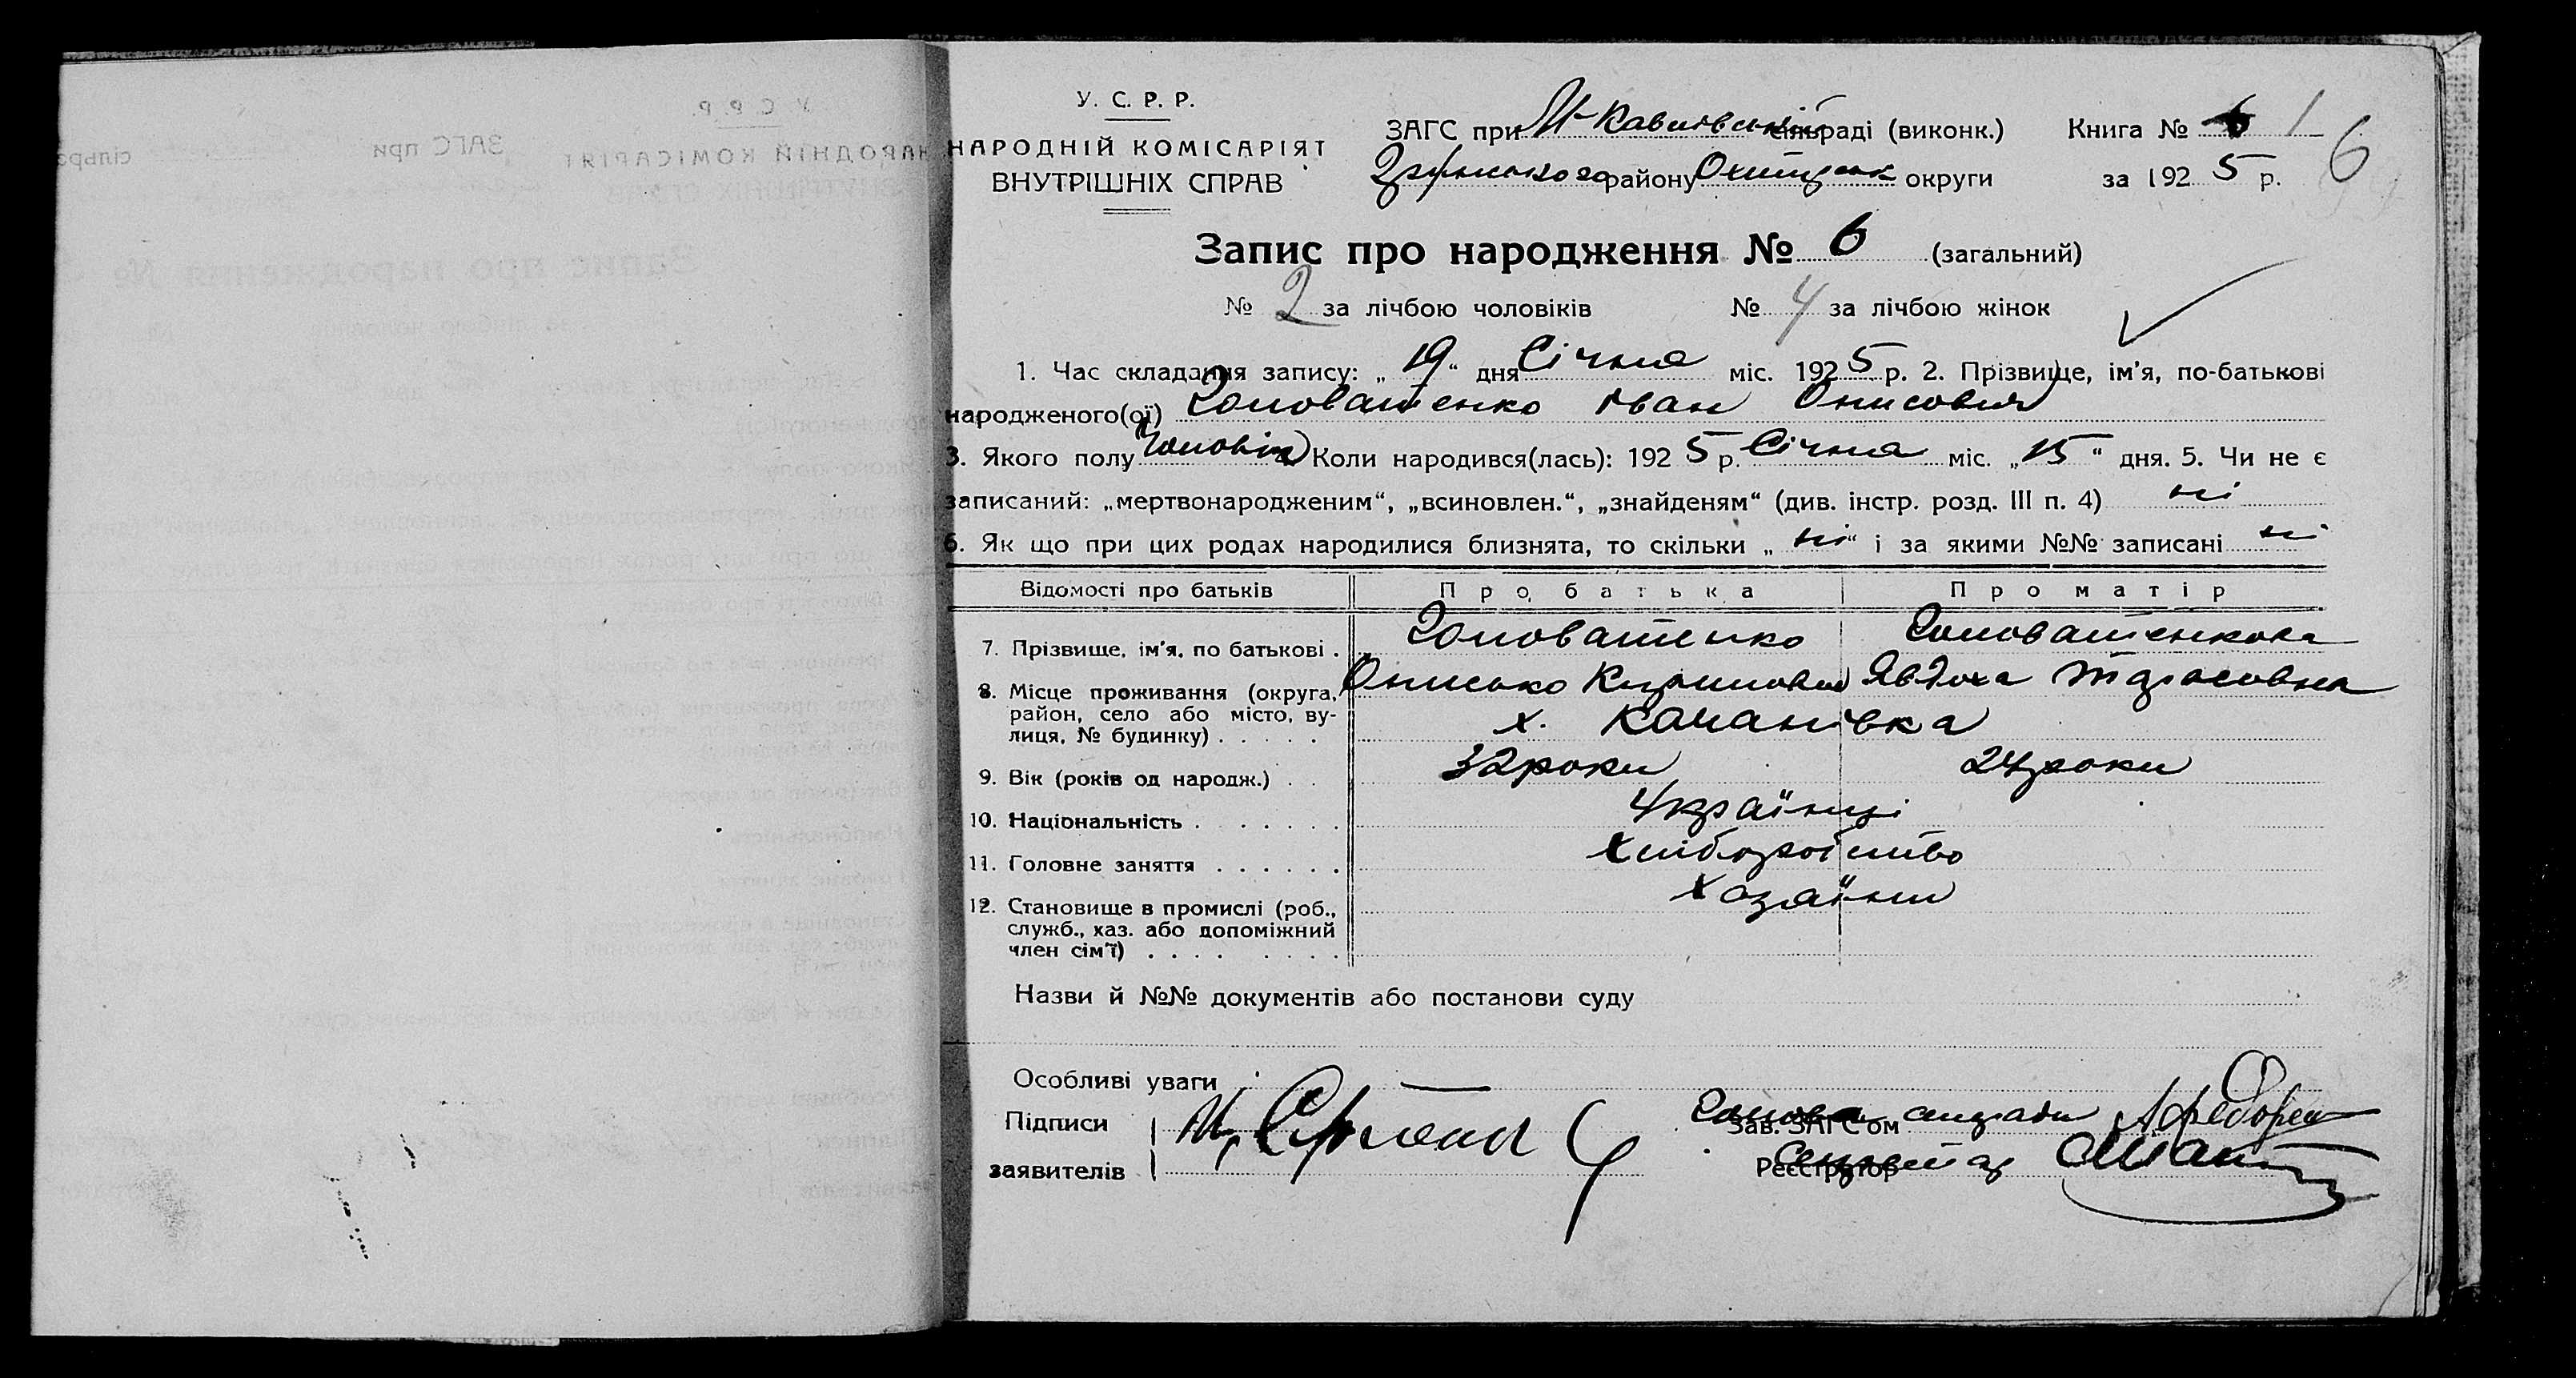 У. С. Р. Р.
НАРОДНІЙ КОМІСАРІЯТ
ВНУТРІШНІХ СПРАВ
ЗАГС при сільраді (виконк.) Книга № 1
району округи за 1925 р.
6
Запис про народження № 6 (загальний)
№ 2 за лічбою чоловіків № 4 за лічбою жінок
1. Час складання запису: „19“ дня Січня міс. 1925 р. 2. Прізвище, ім'я, по-батькові
народженого(ої) Головатенко Іван Онисович
3. Якого полу Чоловік Коли народився(лась): 1925 р. Січня міс. „15“ дня. 5. Чи не є
записаний: „мертвонародженим“, „всиновлен.“, „знайденям“ (див. інстр. розд. III п. 4) ні
6. Як що при цих родах народилися близнята, то скільки „ні“ і за якими №№ записані ні
Відомості про батьків Про батька Про матір
7. Прізвище, ім'я, по батькові . Головатенко Головатенкова
Онисько Кирилович Явдоха Тарасовна
8. Місце проживання (округа, район, село або місто, вулиця, № будинку) . . . . . х. Качанівка
9. Вік (років од народж.) . . 32 роки 24 роки
10. Національність . . . . . . . Українці
11. Головне заняття . . . . . . Хліборобство
12. Становище в промислі (роб., служб., хаз. або допоміжний член сім'ї) . . . . . . . . Хазяїни
Назви й №№ документів або постанови суду
Особливі уваги —
Підписи
заявителів
Зав. ЗАГС'ом Голова сільради
Реєстратор Секретар